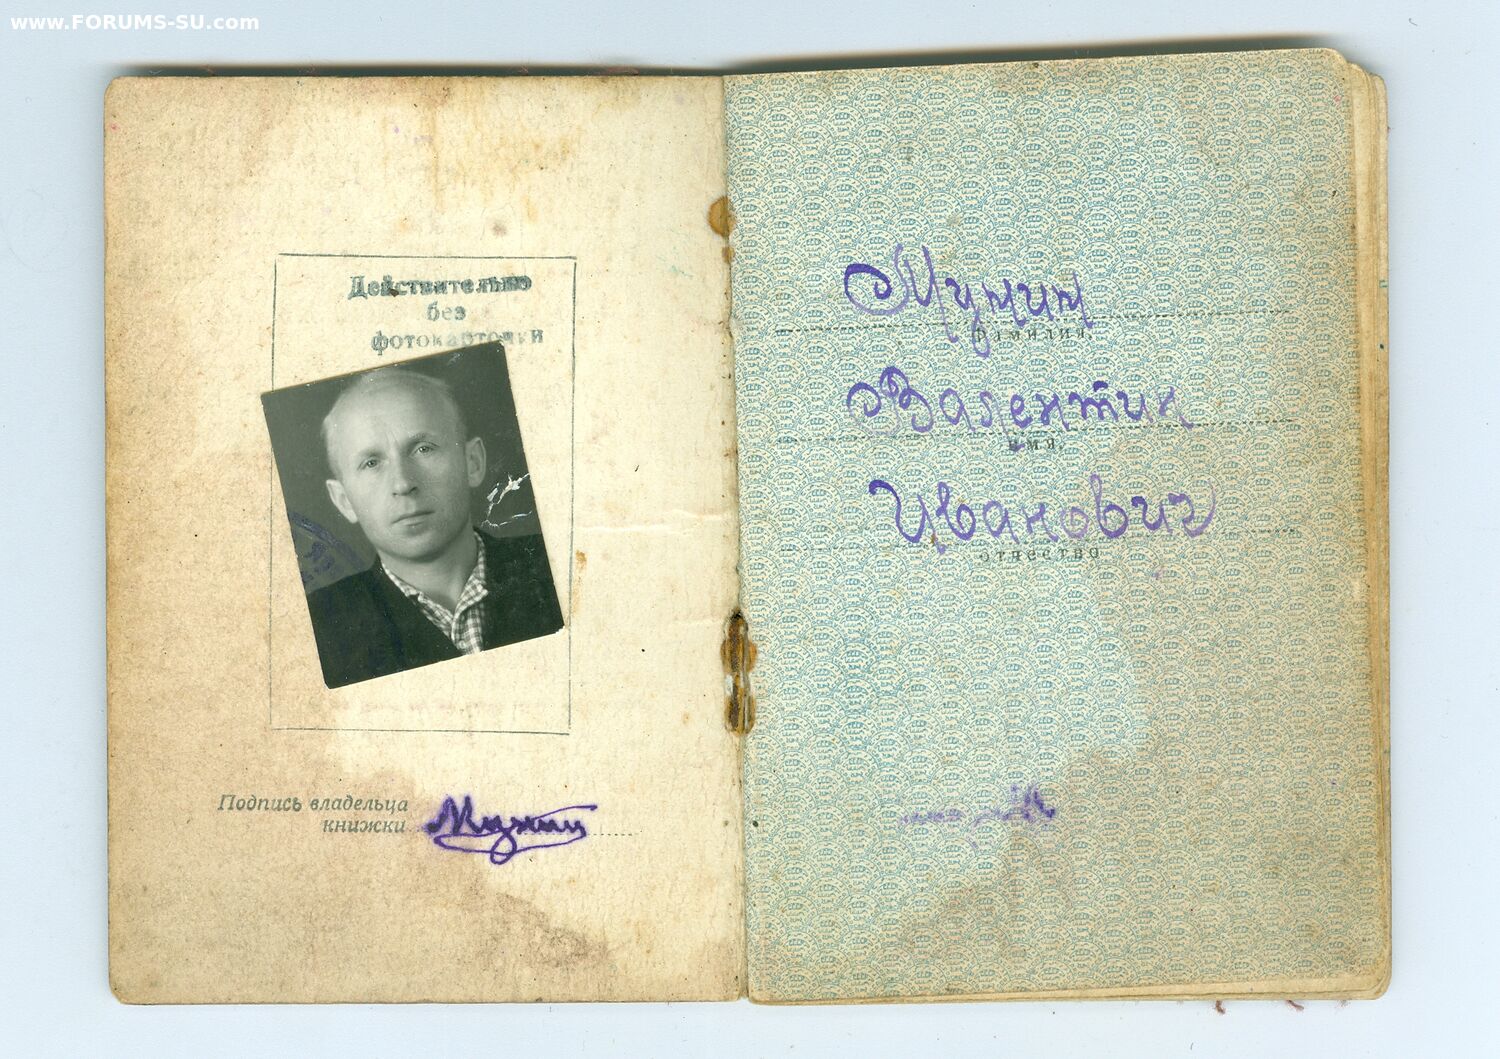 www.FORUMS-SU.com
Действительно
без
фотокарточки
Подпись владельца
книжки
фамилия
Валентин
имя
Иванович
отчество